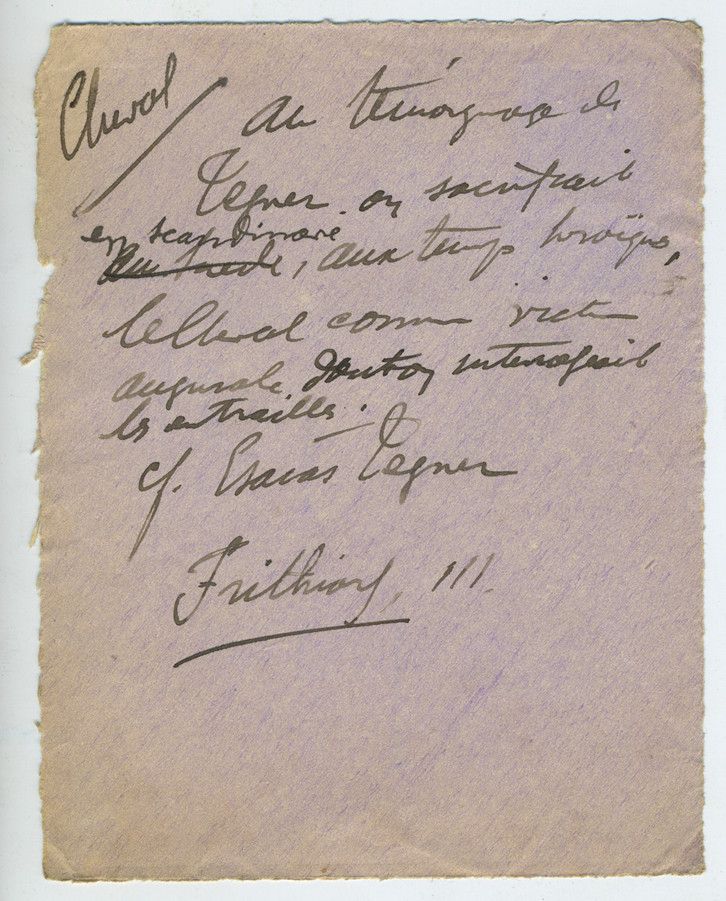 Cheval
Au témoignage de
Tegner. on sacrifiait
en scandinavie
au suède, aux temps héroïques,
le Cheval comme victime
augurale dont on interrogeait
les entrailles.
cf. Esaias Tegner
Frithiof, III.